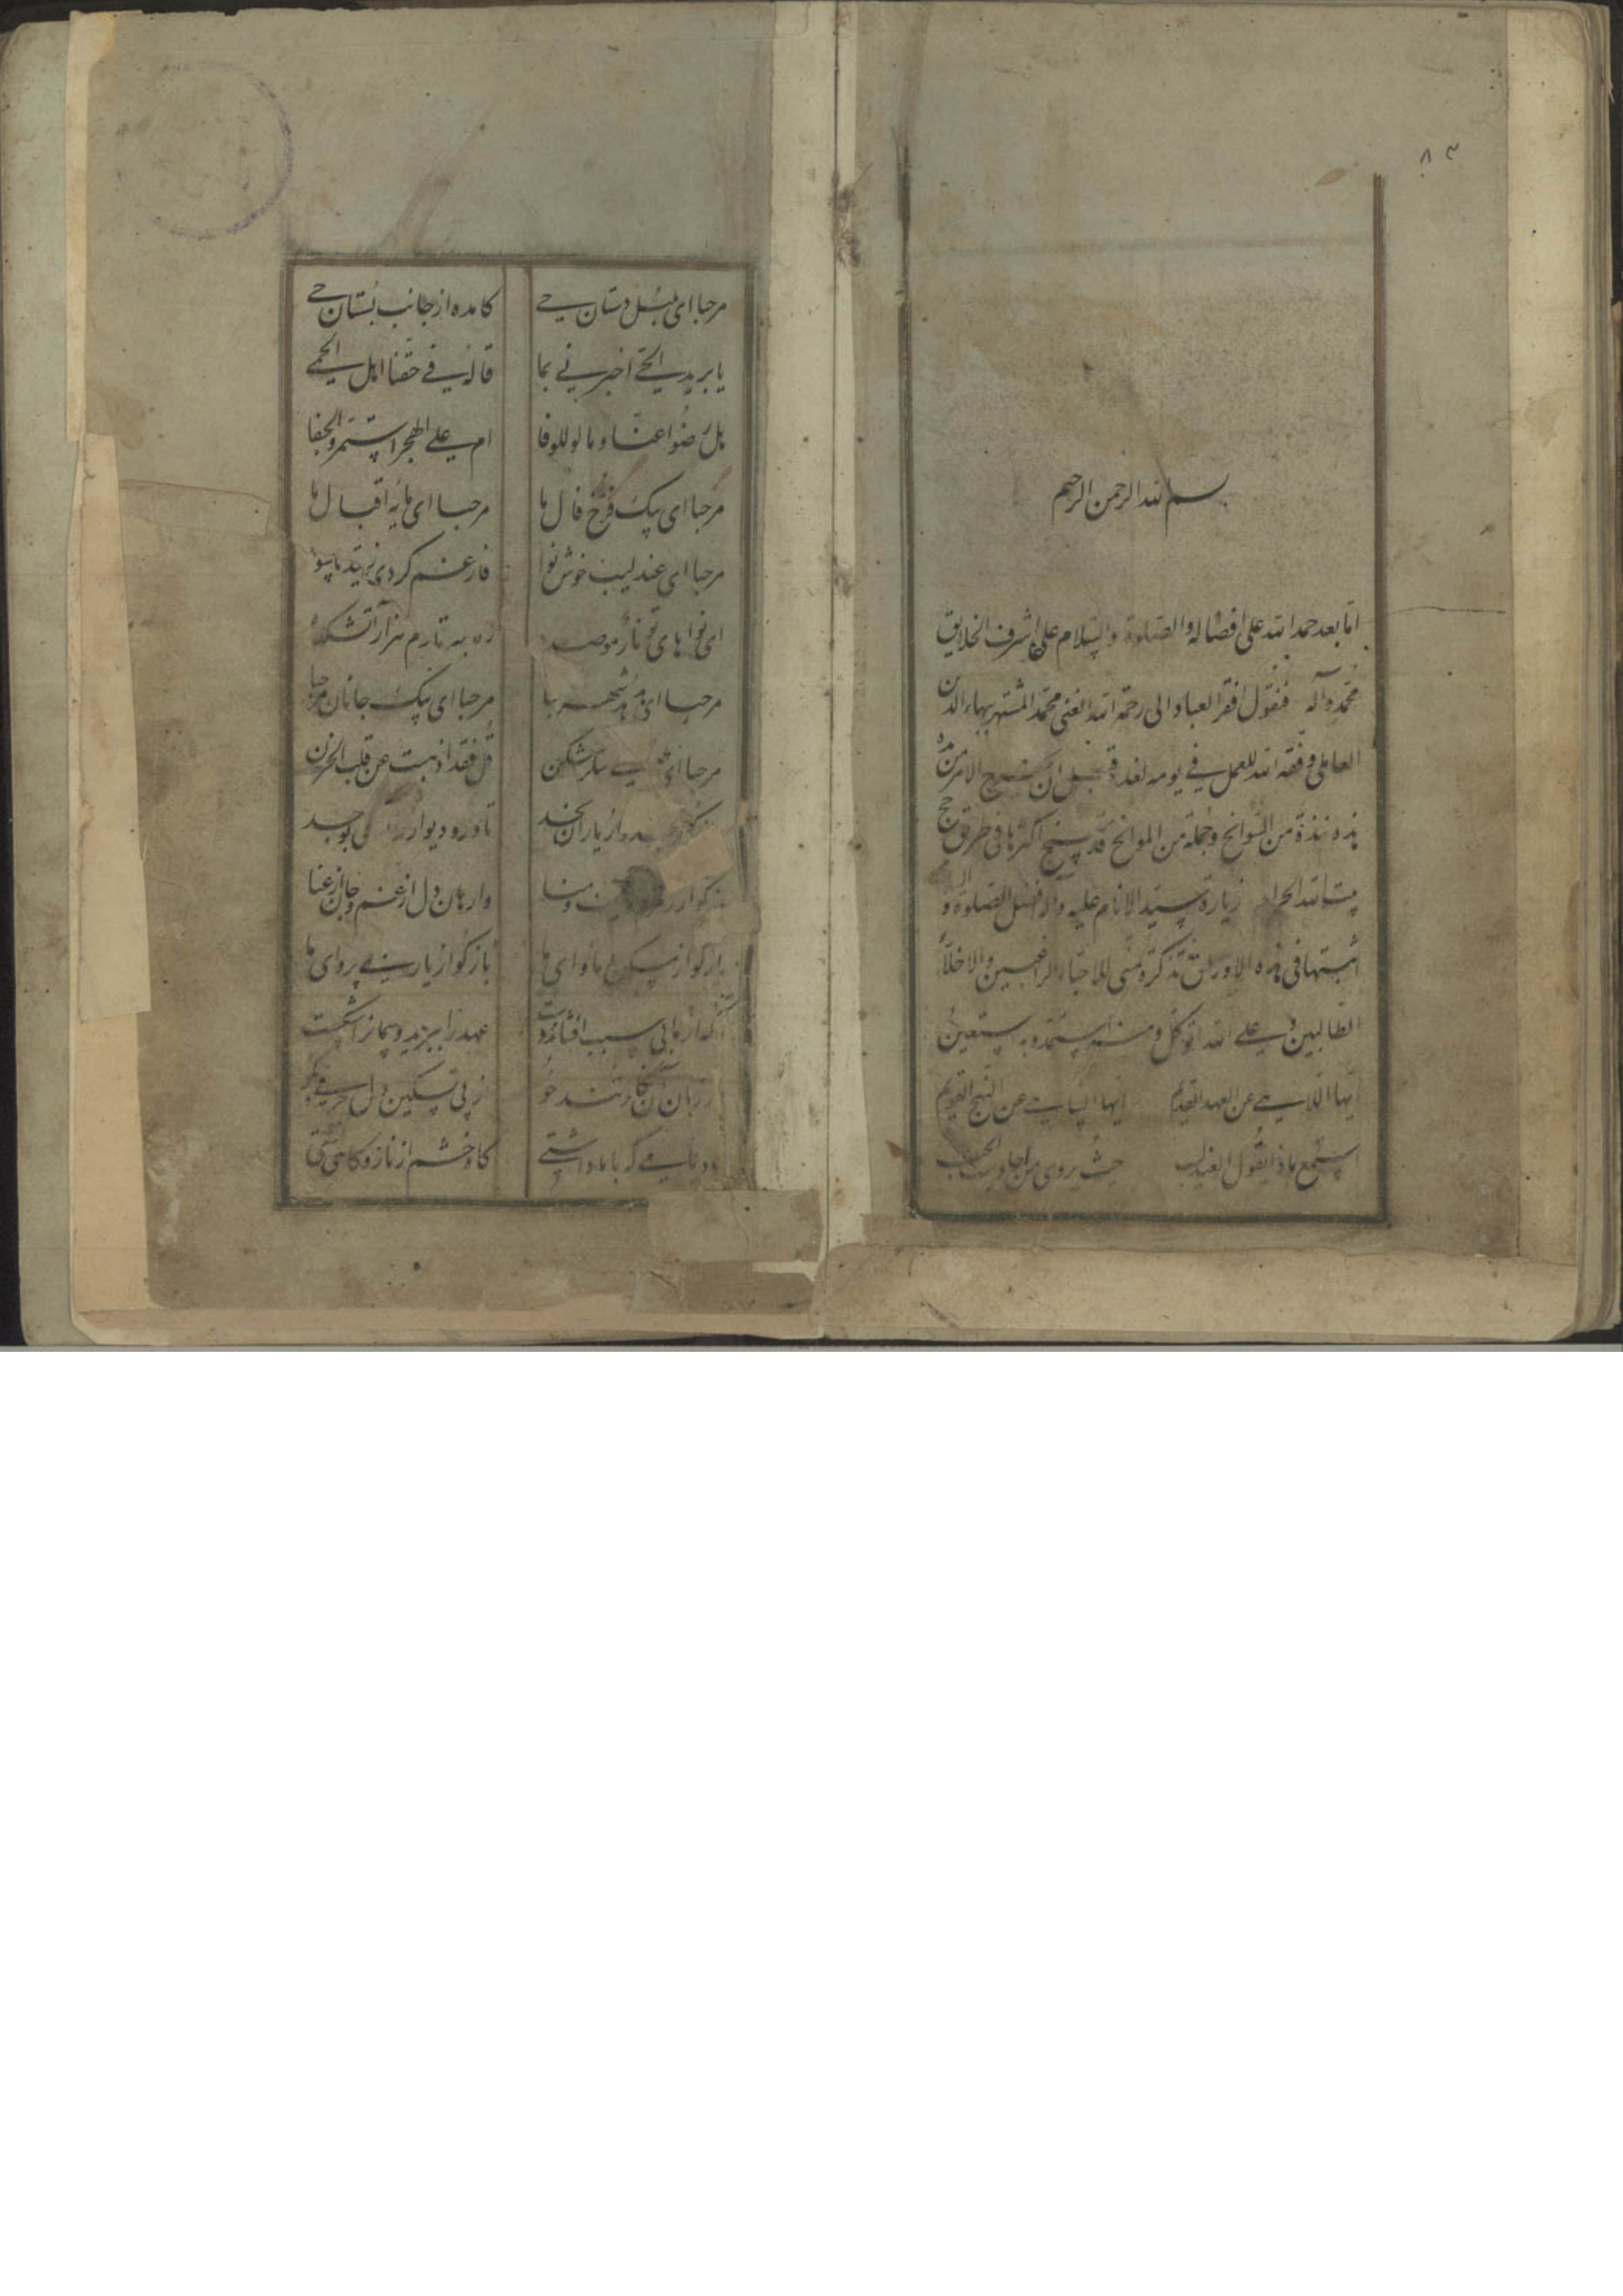 ۸۳
بسم الله الرحمن الرحیم
اما بعد حمد الله علی افضاله والصلوة والسلام علی اشرف الخلایق
محمد وآله فیقول افقر العباد الی رحمة الله الغنی محمد المشتهر ببهاء الدین
العاملی وفقه الله للعمل فی یومه لغده قبل ان یخرج الامر من یده
هذه نبذة من السوانح وجملة من الموانح قد سنح اکثرها فی طریق حج
بیت الله الحرام زیارة سید الانام علیه وآله افضل الصلوة و السلام
اثبتها فی هذه الاوراق تذکرة منی للاحباء الراغبین والاخلاء
الطالبین علی الله اتوکل و منه استمد و به استعین
ایها اللاهی عن العهد القدیم ایها الساهی عن النهج القویم
استمع ماذا یقول العندلیب حیث یروی من احادیث الحبیب
مرحبا ای بلبل دستان حی کامده از جانب بُستان حی
یا برید الحی اخبرنی بما قاله فی حقنا اهل الحمی
هل رضوا عنا و مالو للوفا ام علی الهجر استمروا والجفا
مرحبا ای پیک فرخ فال ما مرحبا ای مایه اقبال ما
مرحبا ای عندلیب خوش نوا فارغم کردی ز قید ماسوا
ای نواهای تو نار موصده زد به تارم هزار آتشکده
مرحبا ای هدهد شهر سبا مرحبا ای پیک جانان مرحبا
مرحبا ای شکرشکن قل فقد اذهبت عن قلب الحزن
از یاران نجد تا در و دیوار را بوجد
بازگو از و منا وارهان دل از غم و جان از عنا
بازگو از مسکن و ماوای ما بازگو از یار بی پروای ما
آنکه از مابی سبب افشاند دست عهد را ببرید و پیمان را شکست
از زبان آن نگار تند خو از پی تسکین دل حرفی بگو
یاد ایامی که با ما داشتی گاه خشم از ناز و گاهی آشتی